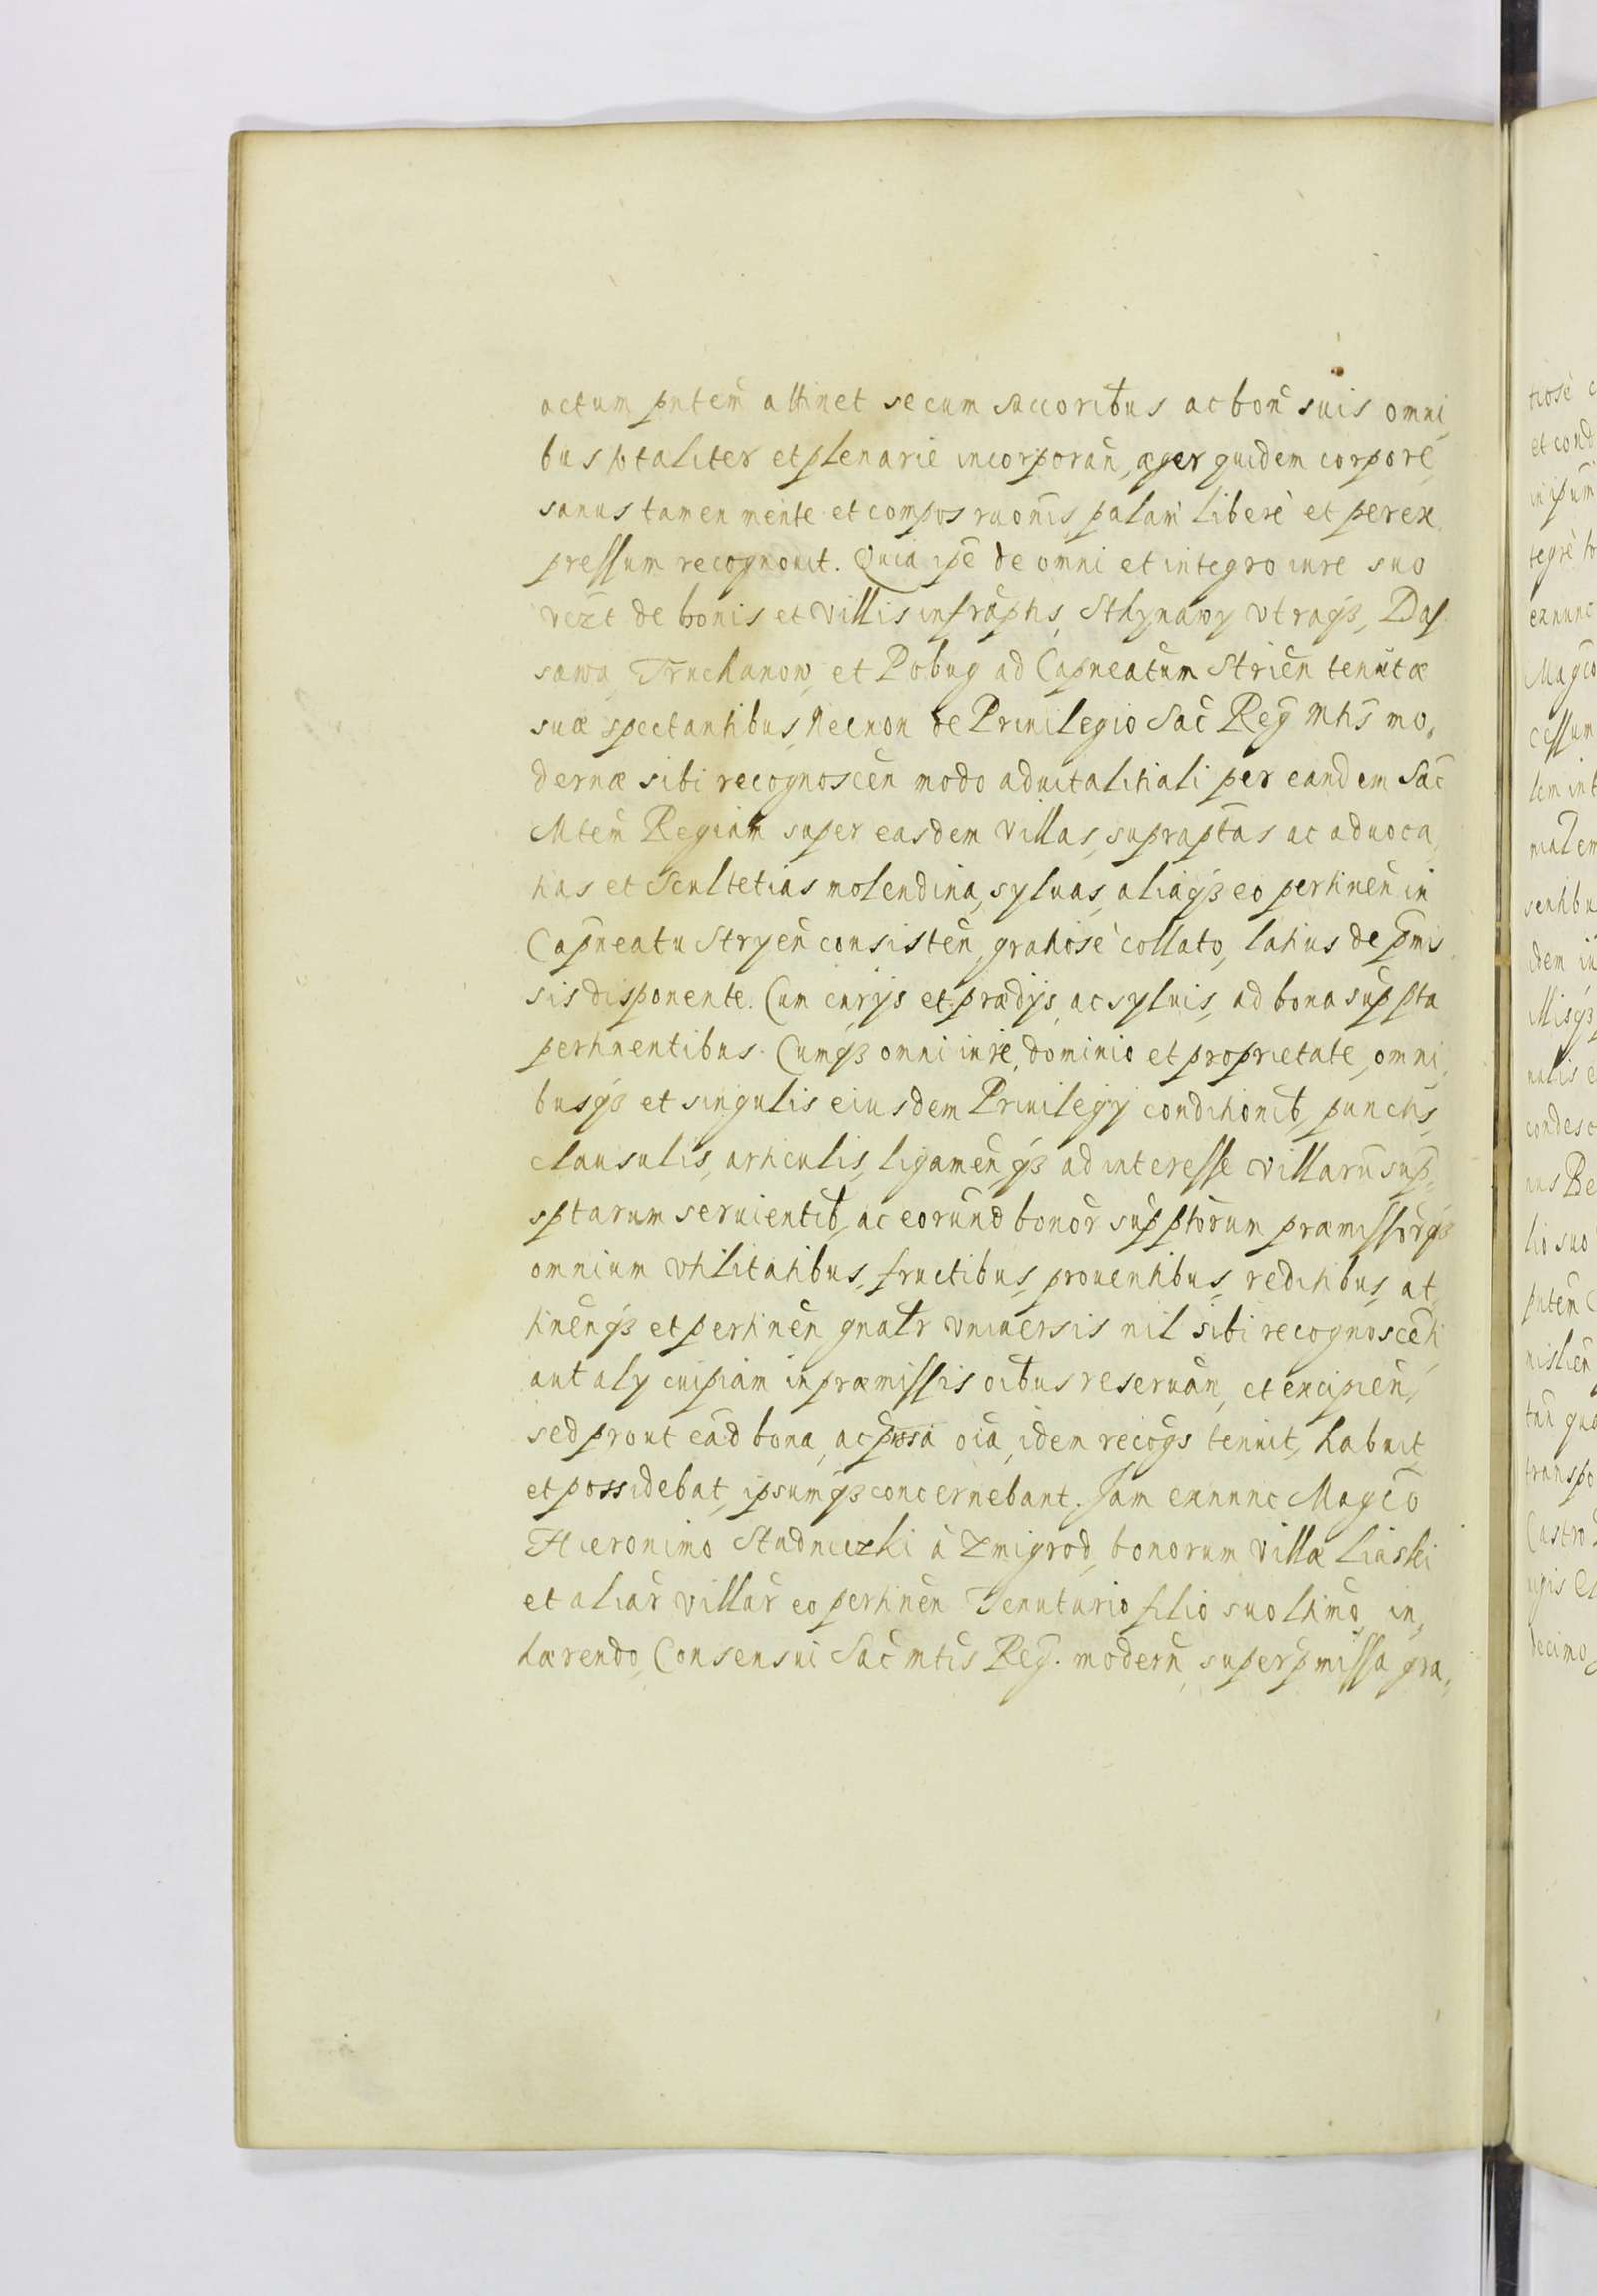 actum pntem̄ attinet secum succoribus ac bon̄ suis omni,
bus totaliter et plenarie incorporan̄, æger quidem corpore,
sanus tamen mente et compos raōnis, palam liberè et per ex,
pressum recognouit. Quia ipē de omni et integro iure suo
vēzt de bonis et Villis infrāptis, Sthynawy vtraqȝ, Das
sawa, Truchanow, et Pobug ad Capneatum Strien̄ tenutæ
suæ spectantibus, Necnon de Priuilegio Sac̄ Reḡ Mtis̄ mo,
dernæ sibi recognoscen̄ modo aduitalitiali per eandem Sac̄
Mtem̄ Regiam super easdem Villas, suprap̄tas ac aduoca,
tias et Scultetias molendina, syluas, aliaqȝ eo pertinen̄ in
Capneatu Stryen̄ consisten̄, gratiosè collato, latius de p̄mis
sis disponente. Cum curijs et prædijs, ac syluis, ad bona sup̄ pta
pertinentibus. Cumqȝ omni iure, dominio et proprietate, omni,
busqȝ et singulis eiusdem Priuilegij conditionib̄, punctis,
clausulis, articulis, ligamen̄qȝ ad interesse Villaru̅ sup̄,
sptarum seruientib̄, ac eorund̄ bonor̄ sup̄ ptorum præmissor̄qȝ
omnium vtilitatibus, fructibus, prouentibus, reditibus, at,
tinen̄qȝ et pertinen̄ gnalr̄ vniuersis nil sibi recognoscen̄ti
aut alij cuipiam in præmissis oībus reseruan̄, et excipien̄,
sed prout ead̄ bona, ac p̄ssa oīa, idem recoḡs tenuit, habuit,
et possidebat, ipsumqȝ concernebant. Jam exnunc Magc̄o
Hieronimo Stadniczki à Zmigrod, bonorum Villæ Liaski
et aliar̄ Villar̄ eo pertinen̄ Tenutario filio suo ltimo, in,
hærendo, Consensui Sac̄ mtis̄ Reḡ. modern̄, super p̄missa gra,